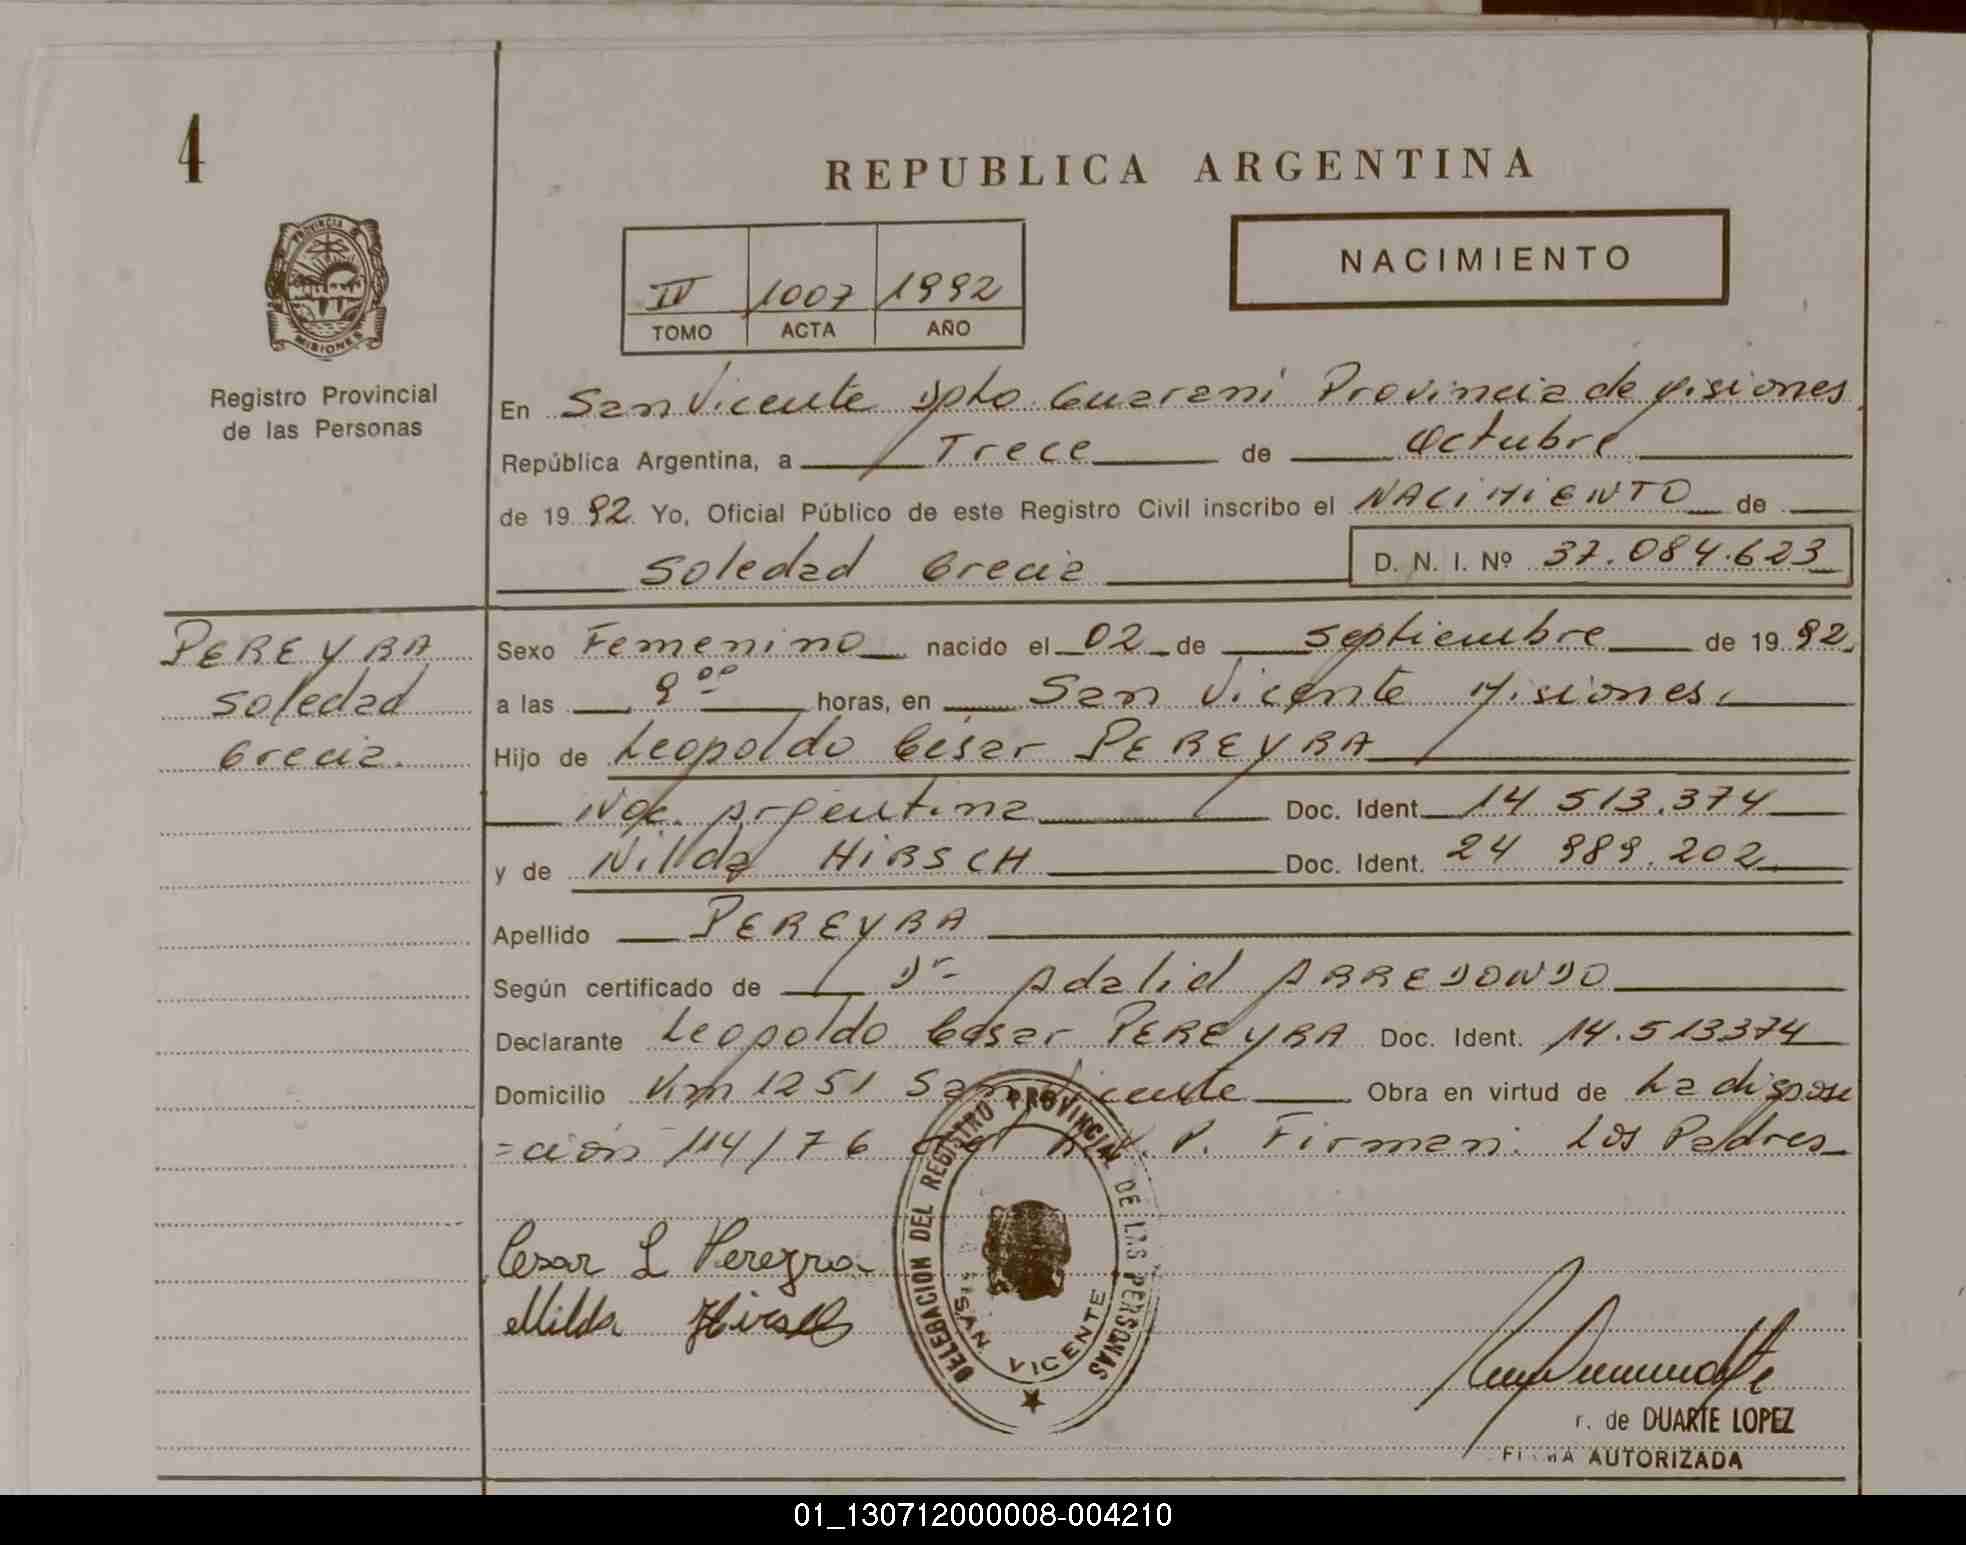 4
REPUBLICA ARGENTINA
PROVINCIA DE
MISIONES
NACIMIENTO
IV 1007 1992
TOMO ACTA AÑO
Registro Provincial
de las Personas
En San Vicente Dpto Guarani Provincia de Misiones
República Argentina, a Trece de Octubre
de 1992 Yo, Oficial Público de este Registro Civil inscribo el NACIMIENTO de
Soledad Grecia D. N. I. Nº 37.084.623
PEREYRA
Soledad
Grecia.
Sexo Femenino nacido el 02 de Septiembre de 1992
a las 9 00 horas, en San Vicente Misiones.
Hijo de Leopoldo César PEREYRA
Nac. Argentina Doc. Ident. 14 513.374
y de Nilda HIRSCH Doc. Ident. 24 989.202
Apellido PEREYRA
Según certificado de Dr Adalid ARREDONDO
Declarante Leopoldo César PEREYRA Doc. Ident. 14.513374
Domicilio Km 1251 San Vicente Obra en virtud de La disposi
=ción 114/76 del R.P. Firman: Los Padres
Cesar L Pereyra
Nilda Hirsch
DELEGACION DEL REGISTRO PROVINCIAL DE LAS PERSONAS
SAN VICENTE
r. de DUARTE LOPEZ
FIRMA AUTORIZADA
01_130712000008-004210